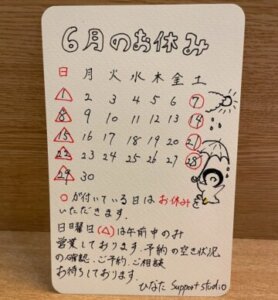 6月のお休み
日 月 火 水 木 金 土
1 2 3 4 5 6 7
8 9 10 11 12 13 14
15 16 17 18 19 20 21
22 23 24 25 26 27 28
29 30
○が付いている日はお休みを
いただきます。
日曜日(△)は午前中のみ
営業しております。予約の空き状況
の確認、ご予約、ご相談
お待ちしております。
ひなた Support studio